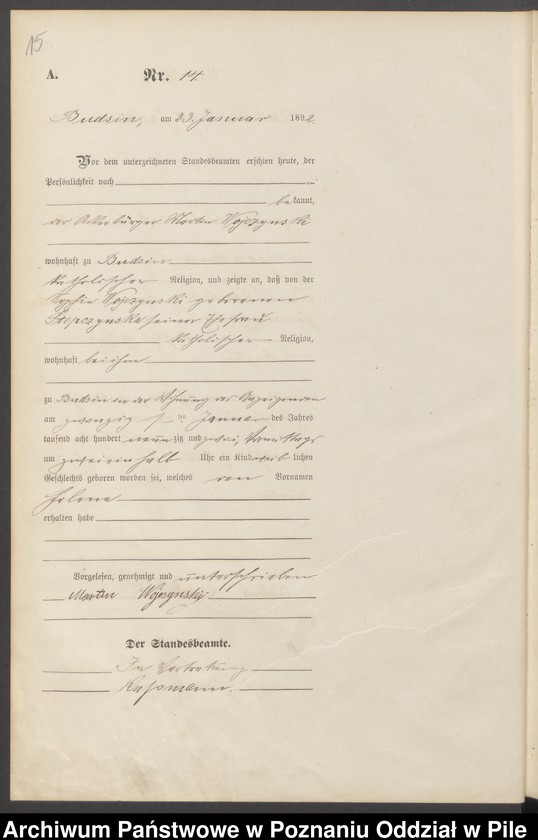 15
A. Nr. 14
Budsin, am 23. Januar 1892
Vor dem unterzeichneten Standesbeamten erschien heute, der
Persönlichkeit nach
bekannt,
der Ackerbürger Martin Wojczynski
wohnhaft zu Budsin
katholischer Religion, und zeigte an, daß von der
Sophie Wojczynski geborenen
Stepczynska seiner Ehefrau
katholischer Religion,
wohnhaft bei ihm
zu Budsin in der Wohnung des Anzeigenden
am zwanzigsten Januar des Jahres
tausend acht hundert neunzig und zwei, Vormittags
um zwei ein halb Uhr ein Kind weiblichen
Geschlechts geboren worden sei, welches den Vornamen
Helene
erhalten habe
Vorgelesen, genehmigt und unterschrieben
Martin Wojczynski
Der Standesbeamte.
In Vertretung
Kussmann.
Archiwum Państwowe w Poznaniu Oddział w Pile